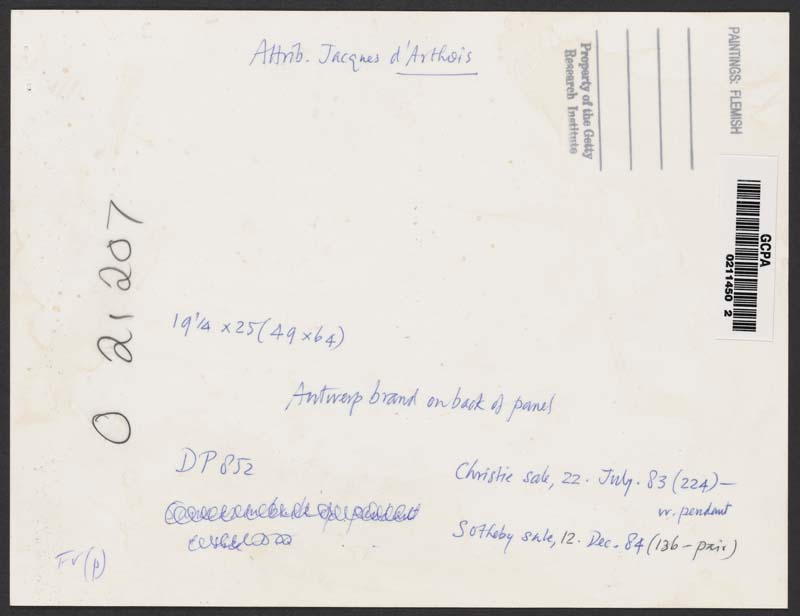 Attrib. Jacques d'Arthois
Property of the Getty
Research Institute
PAINTINGS: FLEMISH
GCPA
0211450 2
0 21207
19 1/4 x 25 (49 x 64)
Antwerp brand on back of panel
DP 852
Christie sale, 22. July. 83 (224) –
w. pendant
Sotheby sale, 12. Dec. 84 (136 – pair)
Fr (p)